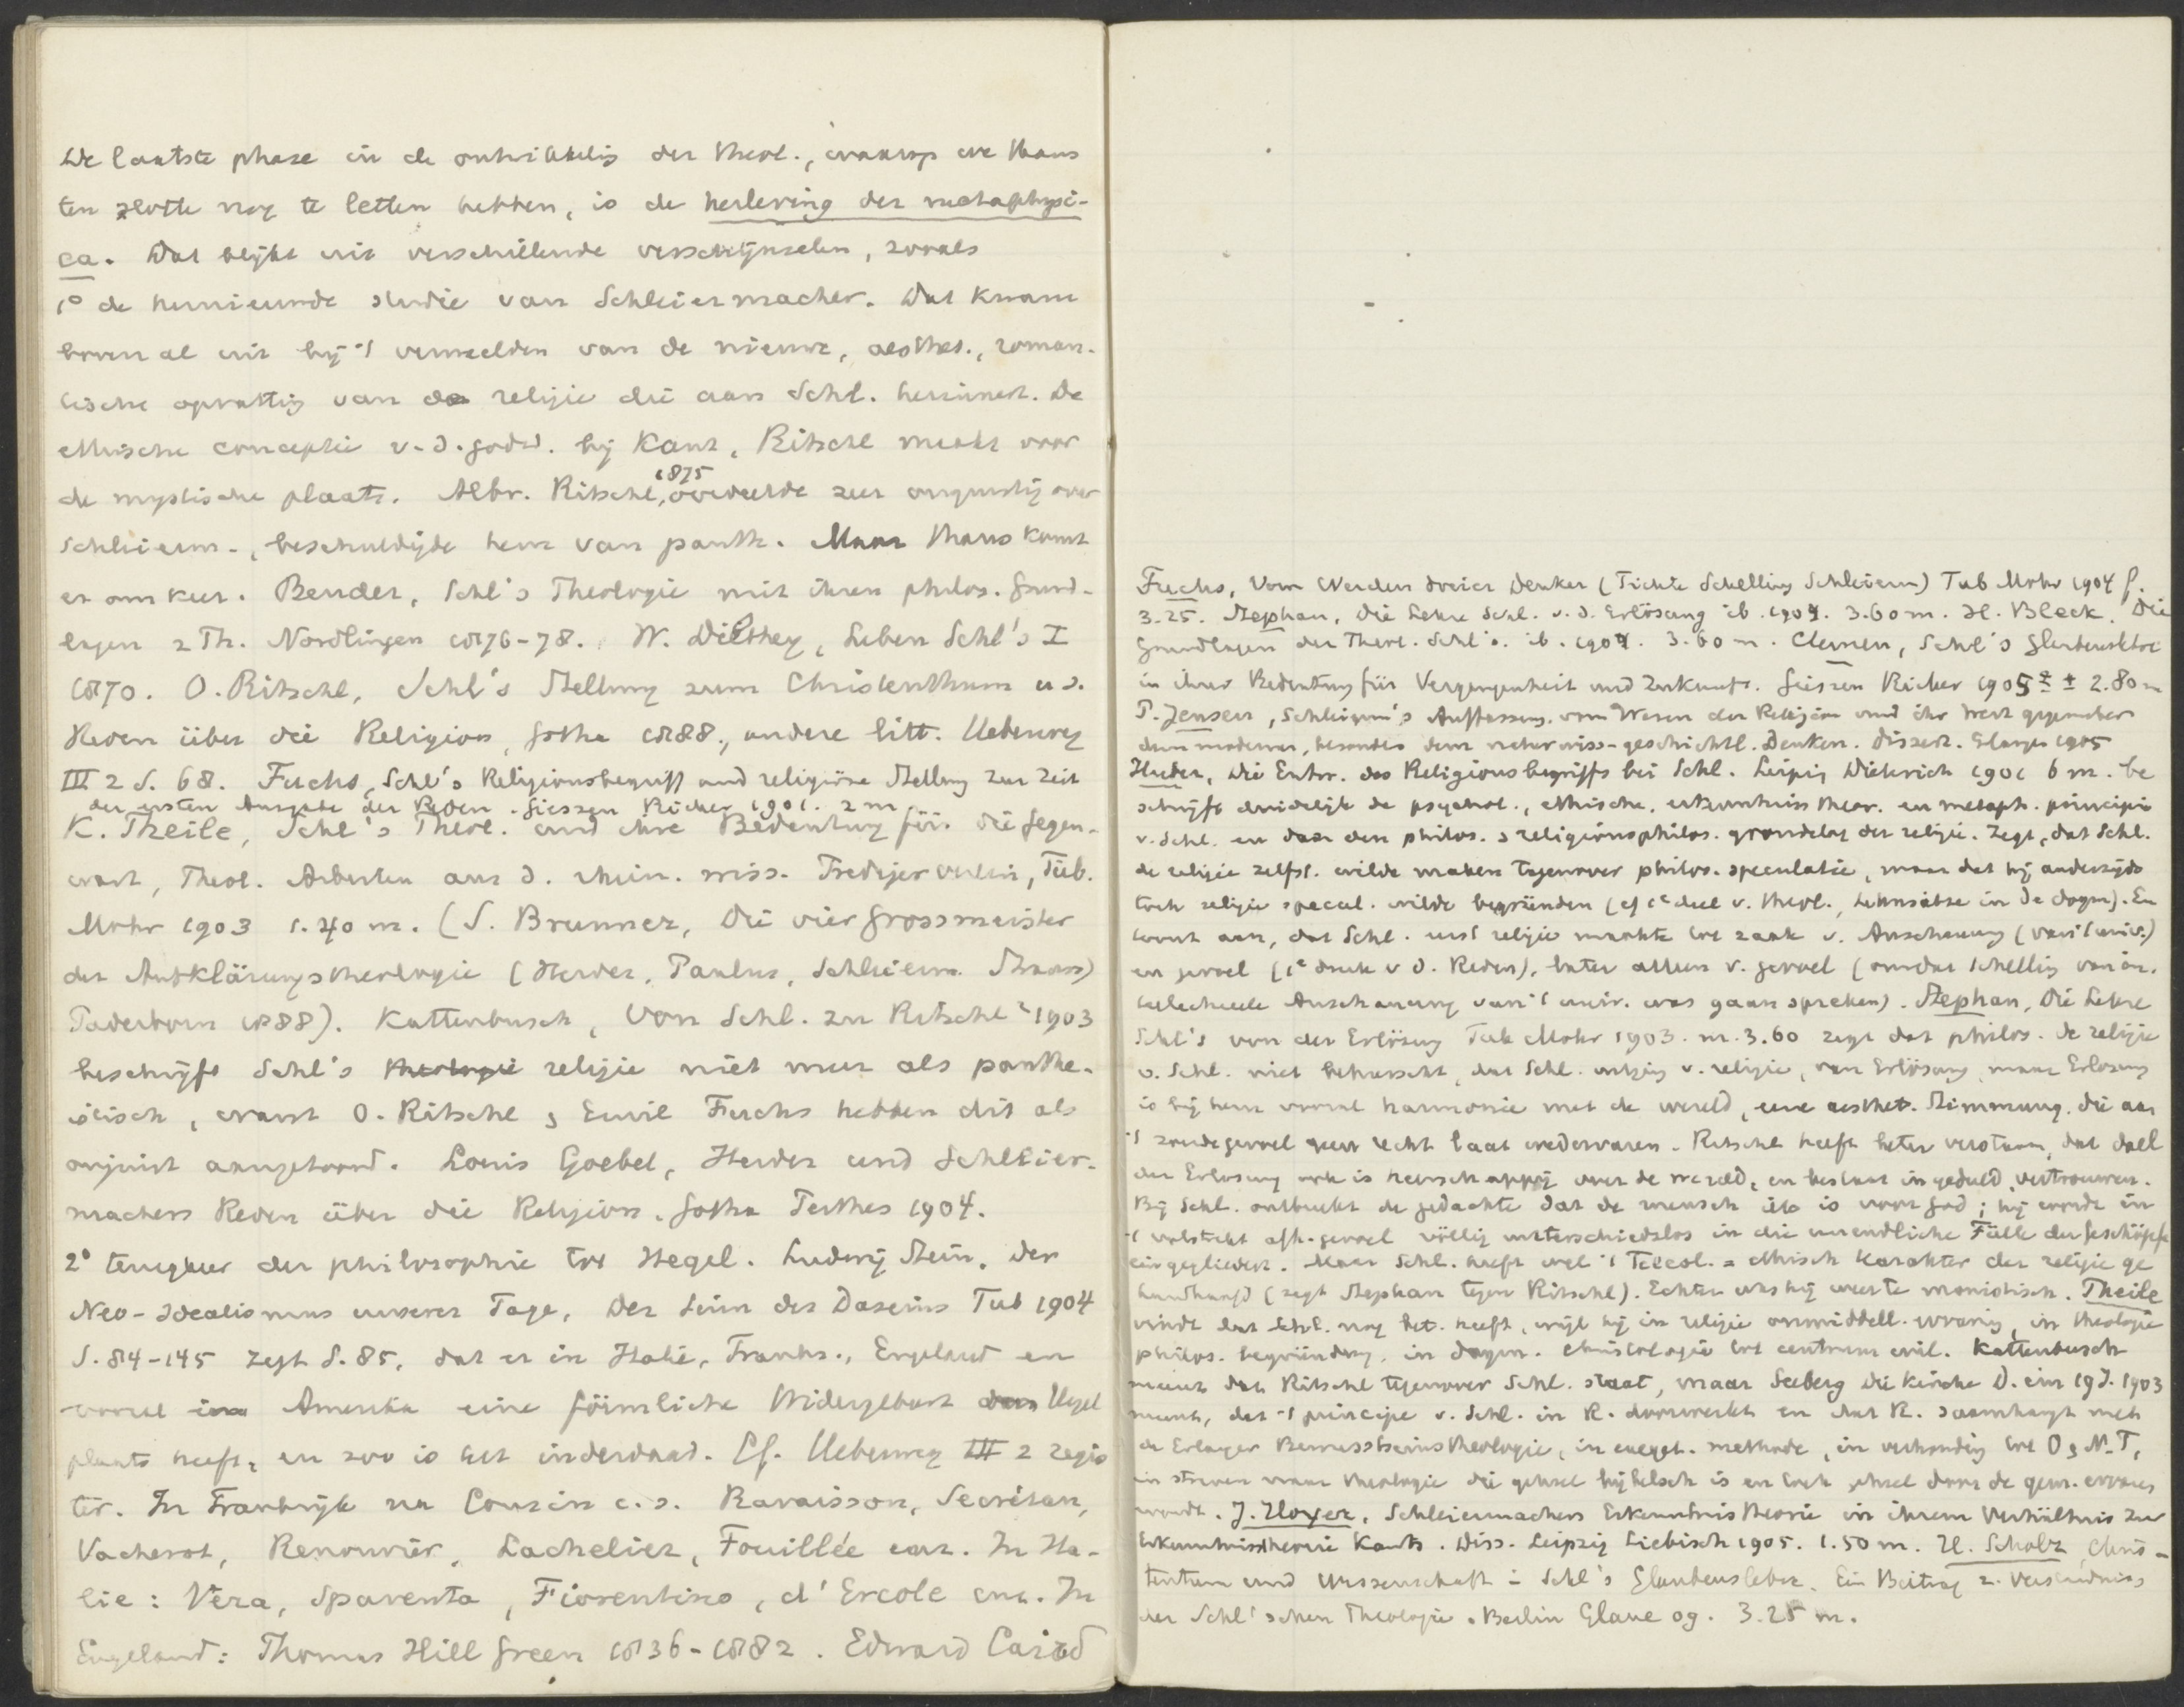 De laatste phase in de ontwikkelig der theol., waarop we thans
ten slotte nog te letten hebben, is de herleving der metaphysi-
ca. Dat blijkt uit verschillende verschijnselen, zooals
1° de hernieuwde studie van Schleiermacher. Dat kwam
boven al uit bij 't vermelden van de nieuwe, aesthet., roman-
tische opvattig van de religie die aan Schl. herinnert. De
ethische conceptie v. d. godsd. bij Kant, Ritschl maakt voor
de mystische plaats. Albr. Ritschl, 1875 oordeelde zeer ongunstig over
Schleierm., beschuldigde hem van panth. Maar thans komt
er om keer. Bender, Schl's Theologie mit ihren philos. Grund-
lagen 2 Th. Nordlingen 1876-78. W. Dilthey, Leben Schl's I
1870. O. Ritschl, Schl's Stellung zum Christenthum u s.
Reden über die Religion, Gotha 1888., andere litt. Ueberweg
III 2 S. 68. Fuchs, Schl's Religionsbegriff und religiöse Stellung zur Zeit
der ersten Ausgabe der Reden. Gieszen Ricker 1901. 2 m
K. Theile, Schl's Theol. und ihre Bedeutung für die Gegen-
wart, Theol. Arbeiten aus d. rhein. wiss. Predigerverein, Tüb.
Mohr 1903 1.40 m. (S. Brunner, Die vier Grossmeister
der Aufklärungstheologie (Herder, Paulus, Schleierm. Strauss)
Paderborn 1888). Kattenbusch, Von Schl. zu Ritschl ² 1903
beschrijft Schl's theologie religie niet meer als panthe-
istisch, want O. Ritschl & Emil Fuchs hebben dit als
onjuist aangetoond. Louis Goebel, Herder und Schleier-
machers Reden über die Religion. Gotha Perthes 1904.
2° terugkeer der philosophie tot Hegel. Ludwig Stein, Der
Neo-Idealismus unserer Tage, Der Sinn des Daseins Tub 1904
S. 84-145 zegt S. 85, dat er in Italië, Frankr., Engeland en
vooral in Amerika eine förmliche Widergeburt Hegel
plaats heeft, en zoo is het inderdaad. Cf. Ueberweg III 2 regis
ter. In Frankrijk na Cousin c.s. Ravaisson, Secrétan,
Vacherot, Renouvier, Lachelier, Fouillée enz. In Ita-
lie: Vera, Spaventa, Fiorentino, d'Ercole enz. In
Engeland: Thomas Hill Green 1836-1882. Edward Caird
Fuchs, Vom Werden dreier Denker (Fichte Schelling Schleierm) Tub Mohr 1904
3.25. Stephan, Die Lehre Schl. v. d. Erlösung ib. 1904. 3.60 m. H. Bleek. Die
Grundlagen der Theol. Schl's. ib. 1904. 3.60 m. Clemen, Schl's Glaubenslehre
in ihrer Bedeutung für Vergangenheit und Zukunft. Giessen Ricker 1905 2.80 m
P. Jensen, Schleierm's Auffassung vom Wesen der Religion und ihr Wert gegenüber
dem modernen, besonders dem naturwiss-geschichtl. Denken. Dissert. Erlangen 1905
Huber, Die Entw. des Religionsbegriffs bei Schl. Leipzig Dieterich 1901 6 m. be
schrijft duidelijk de psychol., ethische, erkenntniss theor. en metaph. principia
v. Schl. en dan den philos. & religionsphilos. grondslag der religie. Zegt, dat Schl.
de religie zelfst. wilde maken tegenover philos. speculatie, maar dat hij anderzijds
toch religie specul. wilde begründen (cf 1e deel v. theol., Lehnsätze in de dogm). En
toont aan, dat Schl. eerst religie maakte tot zaak v. Anschauung (van 't univ.)
en gevoel (1e druk v d. Reden), later alleen v. gevoel (omdat Schelling van
intellectuelle Anschauung van 't univ. was gaan spreken). Stephan, Die Lehre
Schl's von der Erlösung Tub Mohr 1903. m. 3.60 zegt dat philos. de religie
v. Schl. niet beheerscht, dat Schl. uitging v. religie, van Erlösung, maar Erlosung
is bij hem vooral harmonie met de wereld, eene aesthet. Stimmung, die aan
't zondegevoel geen recht laat wedervaren. Ritschl heeft beter verstaan, dat doel
der Erlosung ook is heerschappij over de wereld, en bestaat in geduld, vertrouwen.
Bij Schl. ontbreekt de gedachte dat de mensch iets is voor God; hij wordt in
't volstrekt afh. gevoel völlig unterschiedslos in die unendliche Fülle der Geschöpfe
eingegliedert. Maar Schl. heeft wel 't Teleol. = ethisch karakter der religie ge
handhaafd (zegt Stephan tegen Ritschl). Echter was hij eerste monistisch. Theile
vindt dat Schl. nog bet. heeft, wijl hij in religie onmiddell. ervaring, in theologie
philos. begründung, in dogm. christologie tot centrum wil. Kattenbusch
meent dat Ritschl tegenover Schl. staat, maar Seeberg Die Kirche D. im 19 J. 1903
meent, dat 't principe v. Schl. in R. doorwerkt en dat R. saamhangt met
de Erlanger Bewusstseins theologie, in exeget. methode, in verhouding tot O & N. T.,
in streven naar theologie die geheel bijbelsch is en toch geheel door de gem. ervaren
wordt. J. Hoyer, Schleiermachers Erkenntnistheorie in ihrem Verhältnis zur
Erkenntnisstheorie Kants. Diss. Leipzig Liebisch 1905. 1.50 m. H. Scholz, Chris-
tentum und Wissenschaft in Schl's Glaubenslehre. Ein Beitrag z. Verständniss
der Schl'schen Theologie. Berlin Glaue 09. 3.25 m.